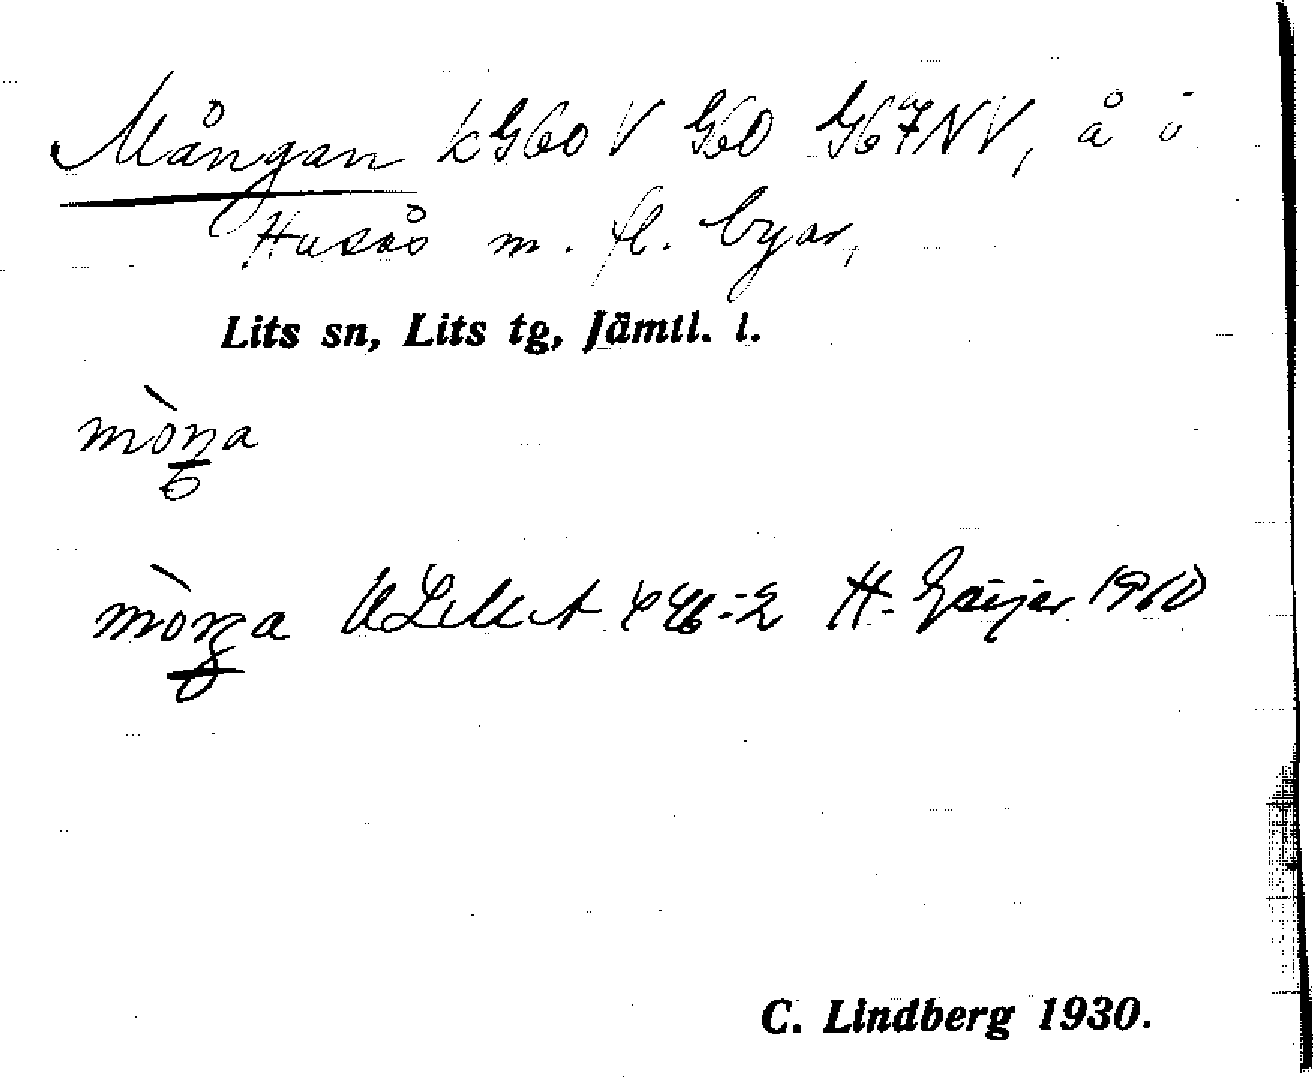 Mångan k G60 V G60 G67NV, å i
Husås m. fl. byar,
Lits sn, Lits tg, Jämtl. l.
mòŋa
mòŋa ULMA 446:2 H. Geijer 1910
C. Lindberg 1930.